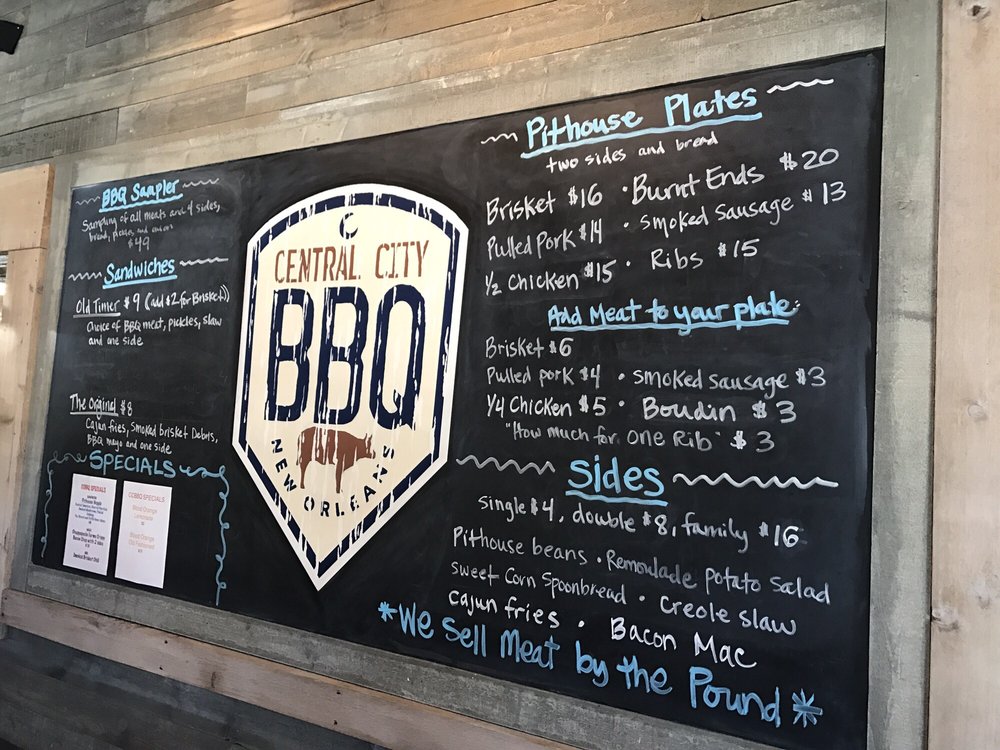 BBQ Sampler
Sampling of all meats and 4 sides,
bread, pickles, and onion
$49
Sandwiches
Old Timer $9 (add $2 for Brisket)
Choice of BBQ meat, pickles, slaw
and one side
The Original $8
Cajun fries, Smoked brisket Debris,
BBQ mayo and one side
SPECIALS
CCBBQ SPECIALS
CCBBQ SPECIALS
Blood Orange
Lemonade
Blood Orange
Old Fashioned
CENTRAL CITY
BBQ
NEW ORLEANS
Pithouse Plates
two sides and bread
Brisket $16 • Burnt Ends $20
Pulled Pork $14 • Smoked Sausage $13
1/2 Chicken $15 • Ribs $15
Add Meat to your plate:
Brisket $6
Pulled pork $4 • smoked sausage $3
1/4 Chicken $5 • Boudin $3
"How much for One Rib" $3
Sides
single $4, double $8, family $16
Pithouse beans • Remoulade potato salad
sweet Corn Spoonbread • Creole slaw
cajun fries • Bacon Mac
*We Sell Meat by the Pound*